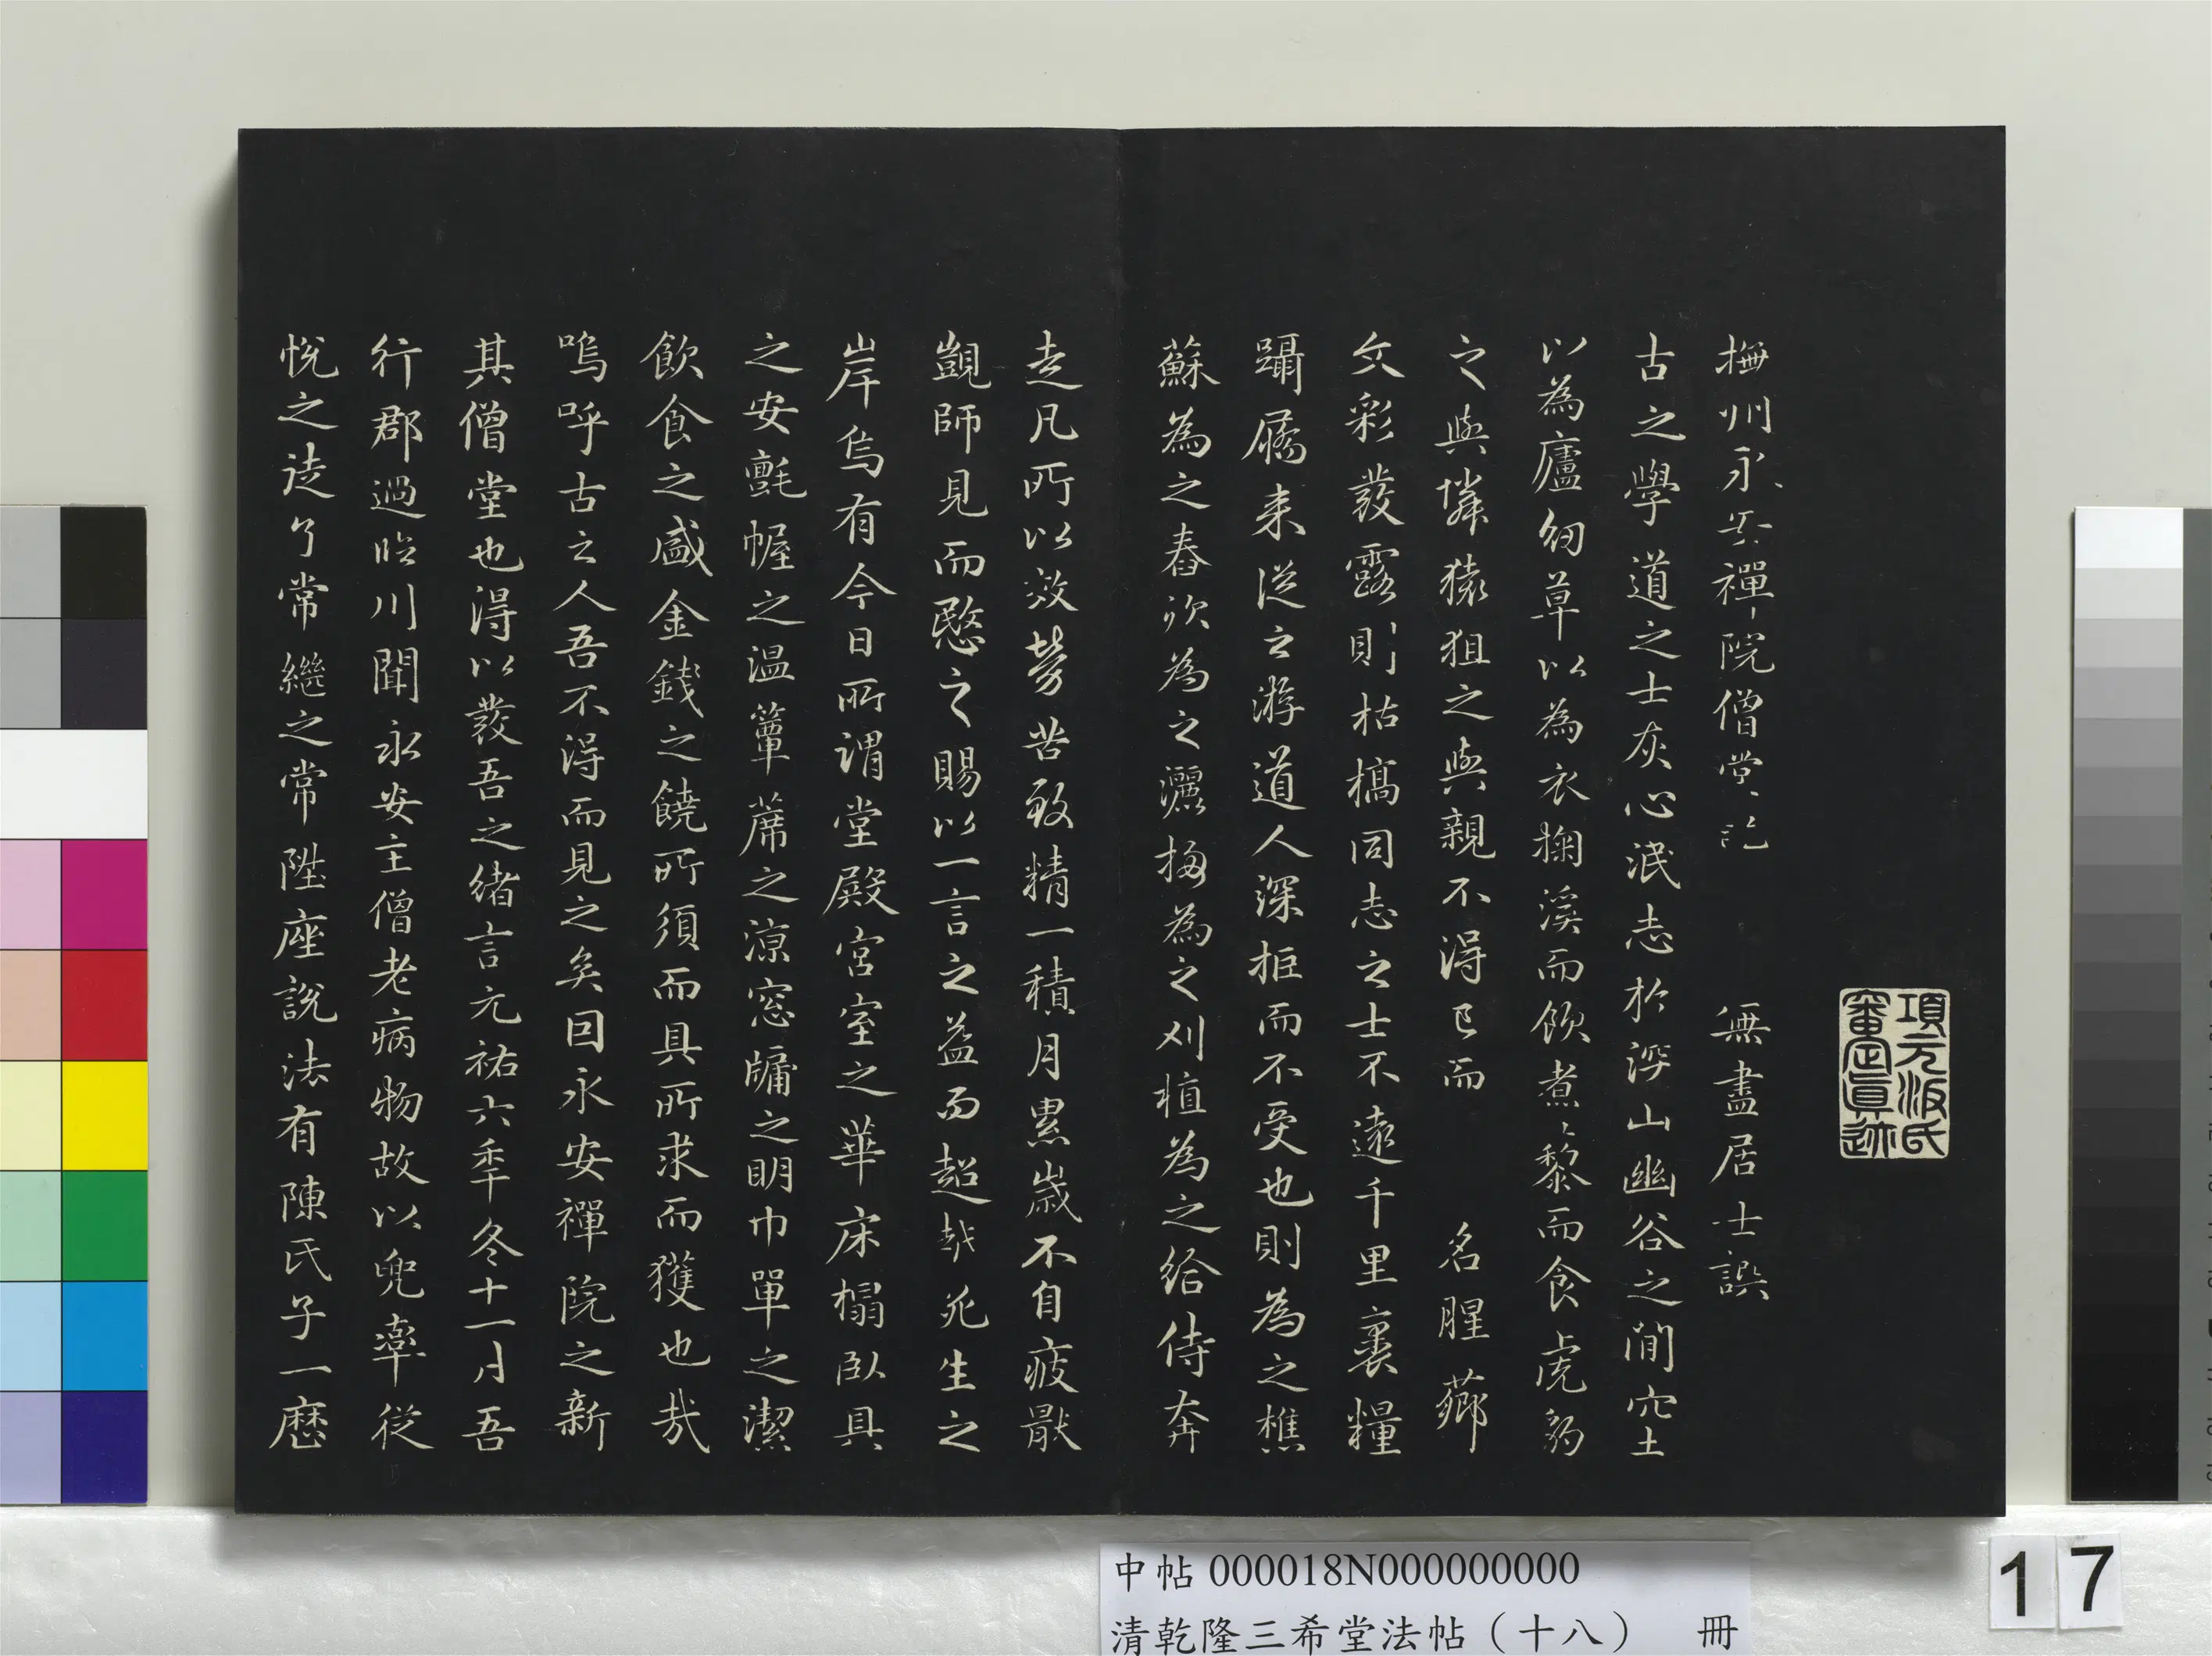 項元汴氏
審定真跡
撫州永安禪院僧堂記 無盡居士譔
古之學道之士灰心泯志於深山幽谷之間穴土
以為廬紉草以為衣掬溪而飲煮藜而食虎豹
之與憐猿狙之與親不得已而 名腥薌
文彩發露則枯槁同志之士不遠千里裹糧
躡屩来從之游道人深拒而不受也則為之樵
蘇為之舂炊為之灑掃為之刈植為之給侍奔
走凡所以效勞苦致精一積月累歲不自疲厭
覬師見而愍之賜以一言之益而超越死生之
岸烏有今日所謂堂殿宮室之華床榻臥具
之安氈幄之温簟蓆之涼窓牖之明巾單之潔
飲食之盛金錢之饒所須而具所求而獲也哉
嗚呼古之人吾不得而見之矣因永安禪院之新
其僧堂也得以發吾之緒言元祐六季冬十一月吾
行郡過臨川聞永安主僧老病物故以兜率從
悦之徒了常繼之常陞座説法有陳氏子一歷
中帖 000018N000000000
清乾隆三希堂法帖（十八） 冊
17